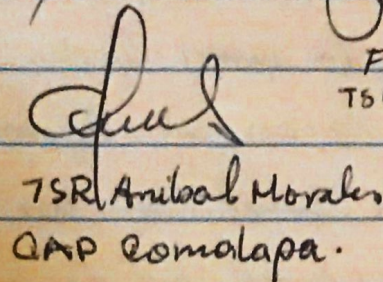 F
TS
TSR Anibal Morales
CAP Comalapa.